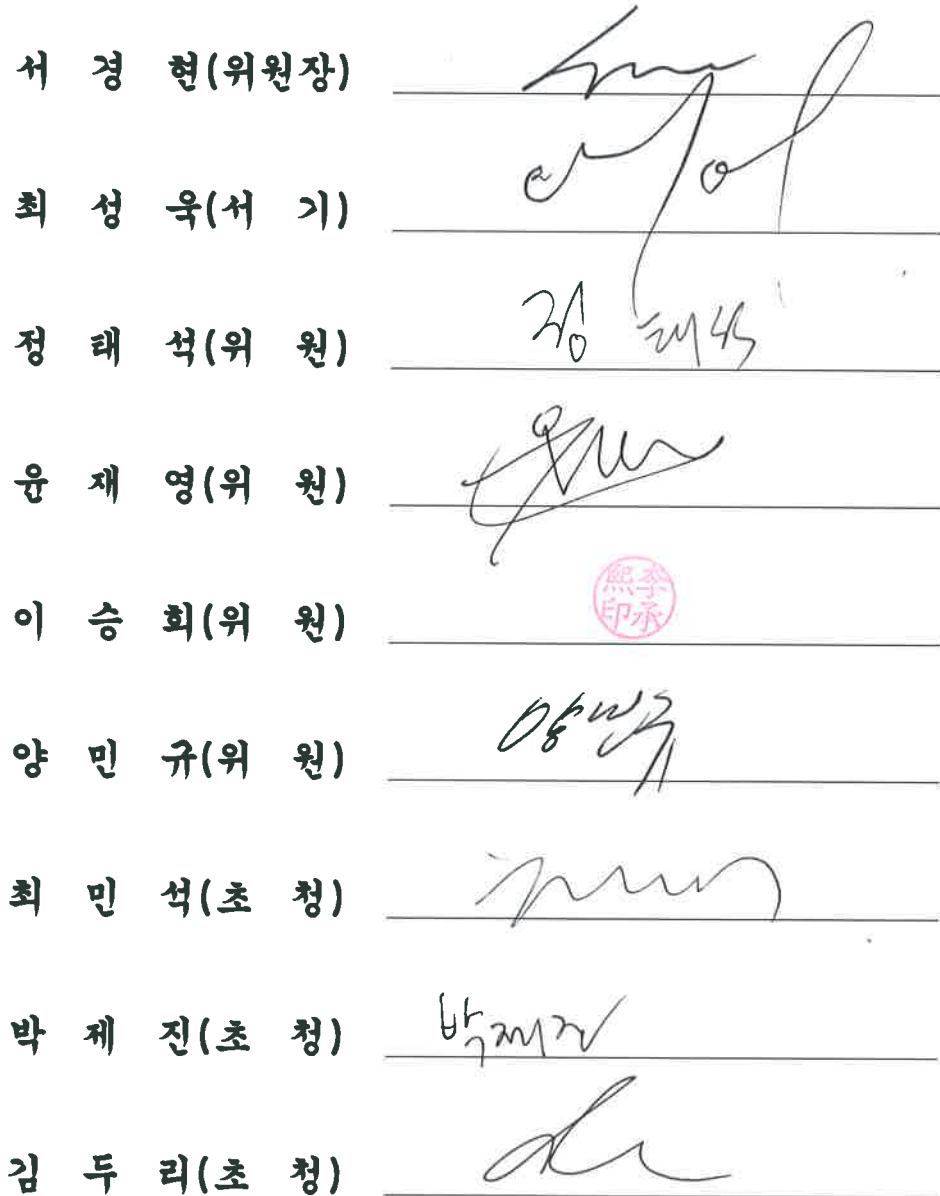 서 경 현(위원장)
최 성 욱(서 기)
정 태 석(위 원) 정 태석
윤 재 영(위 원)
이 승 희(위 원) 李承熙印
양 민 규(위 원) 양민규
최 민 석(초 청)
박 제 진(초 청) 박제진
김 두 리(초 청)